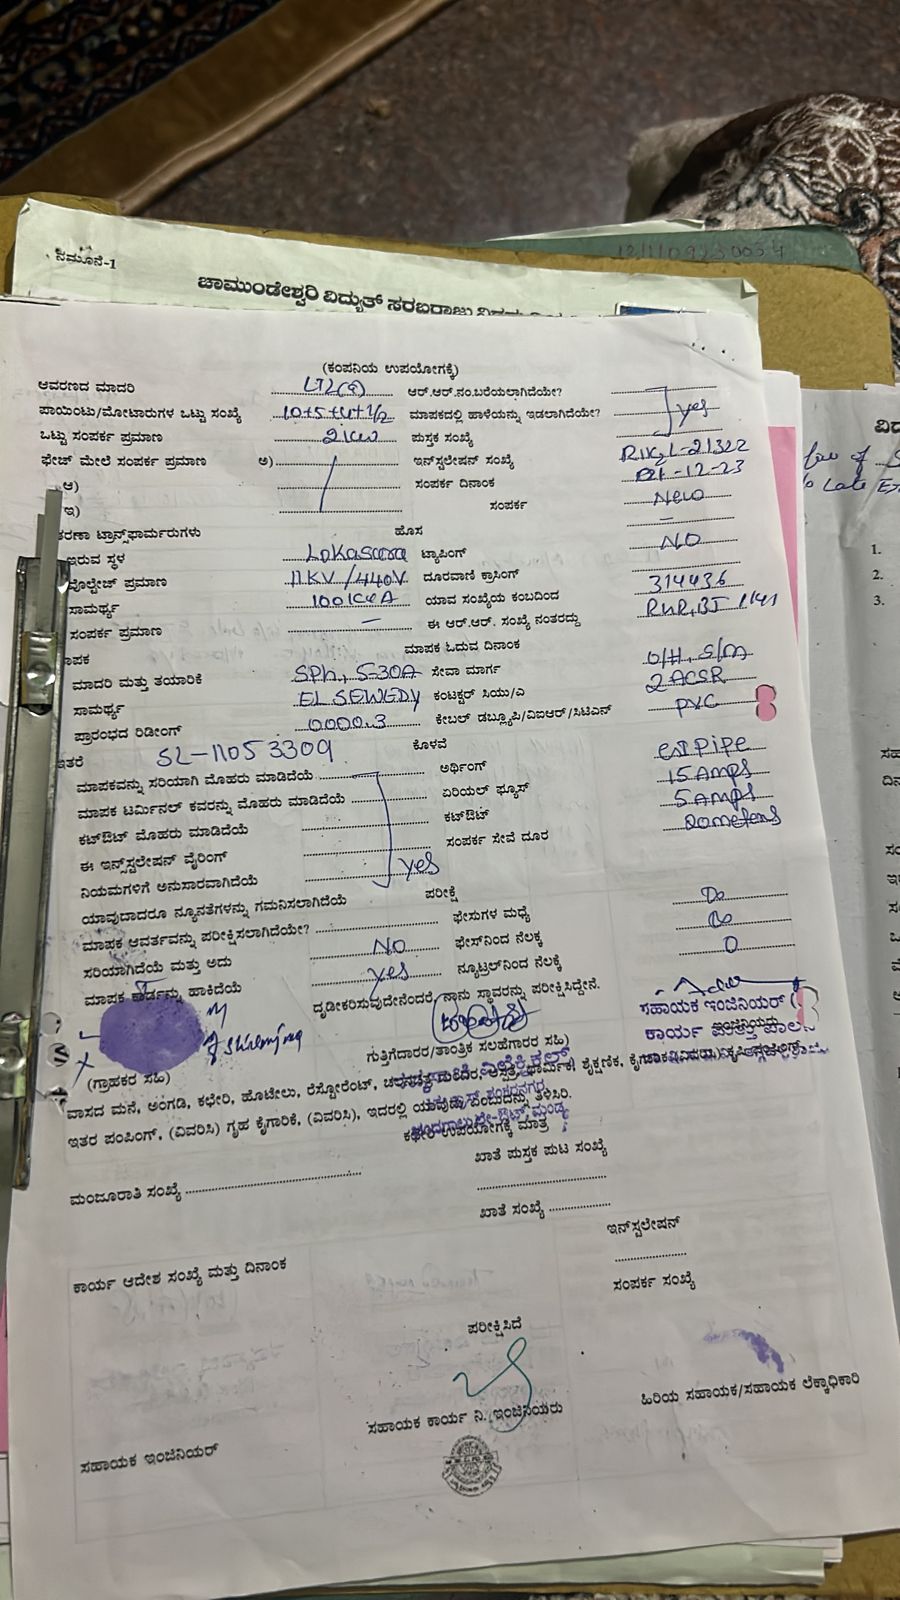 12/1/09/230034
ನಮೂನೆ-1
ಚಾಮುಂಡೇಶ್ವರಿ ವಿದ್ಯುತ್ ಸರಬರಾಜು
(ಕಂಪನಿಯ ಉಪಯೋಗಕ್ಕೆ)
ಆವರಣದ ಮಾದರಿ ಆರ್.ಆರ್.ನಂ.ಬರೆಯಲಾಗಿದೆಯೇ?
ಪಾಯಿಂಟು/ಮೋಟಾರುಗಳ ಒಟ್ಟು ಸಂಖ್ಯೆ 10+5+4+1/2 ಮಾಪಕದಲ್ಲಿ ಹಾಳೆಯನ್ನು ಇಡಲಾಗಿದೆಯೇ? yes
ಒಟ್ಟು ಸಂಪರ್ಕ ಪ್ರಮಾಣ 2kw ಪುಸ್ತಕ ಸಂಖ್ಯೆ
ಫೇಜ್ ಮೇಲೆ ಸಂಪರ್ಕ ಪ್ರಮಾಣ ಅ) ಇನ್‌ಸ್ಟಲೇಷನ್ ಸಂಖ್ಯೆ
ಆ) ಸಂಪರ್ಕ ದಿನಾಂಕ -12-23
ಇ) ಸಂಪರ್ಕ New
ತರಣಾ ಟ್ರಾನ್ಸ್‌ಫಾರ್ಮರುಗಳು ಹೊಸ –
ಇರುವ ಸ್ಥಳ Lokasara ಟ್ಯಾಪಿಂಗ್ NO
ವೋಲ್ಟೇಜ್ ಪ್ರಮಾಣ 11KV/440V ದೂರವಾಣಿ ಕ್ರಾಸಿಂಗ್
ಸಾಮರ್ಥ್ಯ ಯಾವ ಸಂಖ್ಯೆಯ ಕಂಬದಿಂದ 314436
ಸಂಪರ್ಕ ಪ್ರಮಾಣ – ಈ ಆರ್.ಆರ್. ಸಂಖ್ಯೆ ನಂತರದ್ದು
ಾಪಕ ಮಾಪಕ ಓದುವ ದಿನಾಂಕ
ಮಾದರಿ ಮತ್ತು ತಯಾರಿಕೆ SPh, 5-30A ಸೇವಾ ಮಾರ್ಗ O/H, S/M
ಸಾಮರ್ಥ್ಯ EL SEWEDY ಕಂಟಕ್ಟರ್ ಸಿಯು/ಎ 2ACSR
ಪ್ರಾರಂಭದ ರಿಡೀಂಗ್ 0000.3 ಕೇಬಲ್ ಡಬ್ಲ್ಯೂಪಿ/ವಿಐಆರ್/ಸಿಟಿಎನ್ PVC
ಇತರೆ SL-11053309 ಕೊಳವೆ
ಮಾಪಕವನ್ನು ಸರಿಯಾಗಿ ಮೊಹರು ಮಾಡಿದೆಯೆ ಅರ್ಥಿಂಗ್ pipe
ಮಾಪಕ ಟರ್ಮಿನಲ್ ಕವರನ್ನು ಮೊಹರು ಮಾಡಿದೆಯೆ ಏರಿಯಲ್ ಫ್ಯೂಸ್ 15 Amps
ಕಟ್‌ಔಟ್ ಮೊಹರು ಮಾಡಿದೆಯೆ ಕಟ್‌ಔಟ್ 5 Amps
ಈ ಇನ್‌ಸ್ಟಲೇಷನ್ ವೈರಿಂಗ್ ಸಂಪರ್ಕ ಸೇವೆ ದೂರ 20meters
ನಿಯಮಗಳಿಗೆ ಅನುಸಾರವಾಗಿದೆಯೆ yes
ಯಾವುದಾದರೂ ನ್ಯೂನತೆಗಳನ್ನು ಗಮನಿಸಲಾಗಿದೆಯೆ ಪರೀಕ್ಷೆ
ಮಾಪಕ ಆವರ್ತವನ್ನು ಪರೀಕ್ಷಿಸಲಾಗಿದೆಯೇ? ಫೇಸುಗಳ ಮಧ್ಯೆ
ಸರಿಯಾಗಿದೆಯೆ ಮತ್ತು ಅದು NO ಫೇಸ್‌ನಿಂದ ನೆಲಕ್ಕ
ಮಾಪಕ ಕಾರ್ಡನ್ನು ಹಾಕಿದೆಯೆ yes ನ್ಯೂಟ್ರಲ್‌ನಿಂದ ನೆಲಕ್ಕೆ 0
ದೃಡೀಕರಿಸುವುದೇನೆಂದರೆ, ನಾನು ಸ್ಥಾವರನ್ನು ಪರೀಕ್ಷಿಸಿದ್ದೇನೆ.
ಸಹಾಯಕ ಇಂಜಿನಿಯರ್
ಗುತ್ತಿಗೆದಾರರ/ತಾಂತ್ರಿಕ ಸಲಹೆಗಾರರ ಸಹಿ)
(ಗ್ರಾಹಕರ ಸಹಿ)
ವಾಸದ ಮನೆ, ಅಂಗಡಿ, ಕಛೇರಿ, ಹೋಟೇಲು, ರೆಸ್ಟೋರೆಂಟ್,
ಇತರ ಪಂಪಿಂಗ್, (ವಿವರಿಸಿ) ಗೃಹ ಕೈಗಾರಿಕೆ, (ವಿವರಿಸಿ), ಇದರಲ್ಲಿ ಯಾವುದು ಎಂಬುದನ್ನು ತಿಳಿಸಿರಿ.
ಕಛೇರಿ ಉಪಯೋಗಕ್ಕೆ ಮಾತ್ರ
ಖಾತೆ ಪುಸ್ತಕ ಪುಟ ಸಂಖ್ಯೆ
ಮಂಜೂರಾತಿ ಸಂಖ್ಯೆ
ಖಾತೆ ಸಂಖ್ಯೆ
ಇನ್‌ಸ್ಟಲೇಷನ್
ಕಾರ್ಯ ಆದೇಶ ಸಂಖ್ಯೆ ಮತ್ತು ದಿನಾಂಕ
ಸಂಪರ್ಕ ಸಂಖ್ಯೆ
ಪರೀಕ್ಷಿಸಿದೆ
ಸಹಾಯಕ ಇಂಜಿನಿಯರ್ ಸಹಾಯಕ ಕಾರ್ಯ ನಿ. ಇಂಜಿನಿಯರು ಹಿರಿಯ ಸಹಾಯಕ/ಸಹಾಯಕ ಲೆಕ್ಕಾಧಿಕಾರಿ
1.
2.
3.